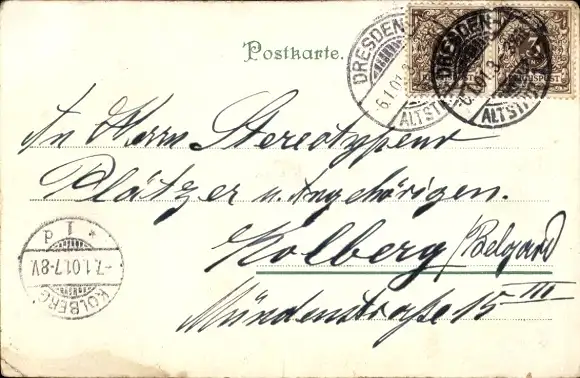 Postkarte.
DRESDEN-
ALTST.
6.1.01.3
DRESDEN-
ALTST.
6.1.01.3
REICHSPOST
An Herrn Stereotypeur
Plätzer u. Angehörigen.
Kolberg (Belgard)
Mündenstraße 15 III
* I d
7.1.01.7-8V.
KOLBERG